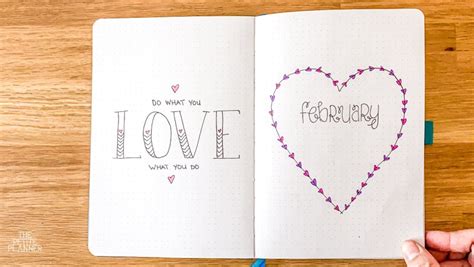 DO WHAT YOU
LOVE
WHAT YOU DO
february
THE
PETITE
PLANNER